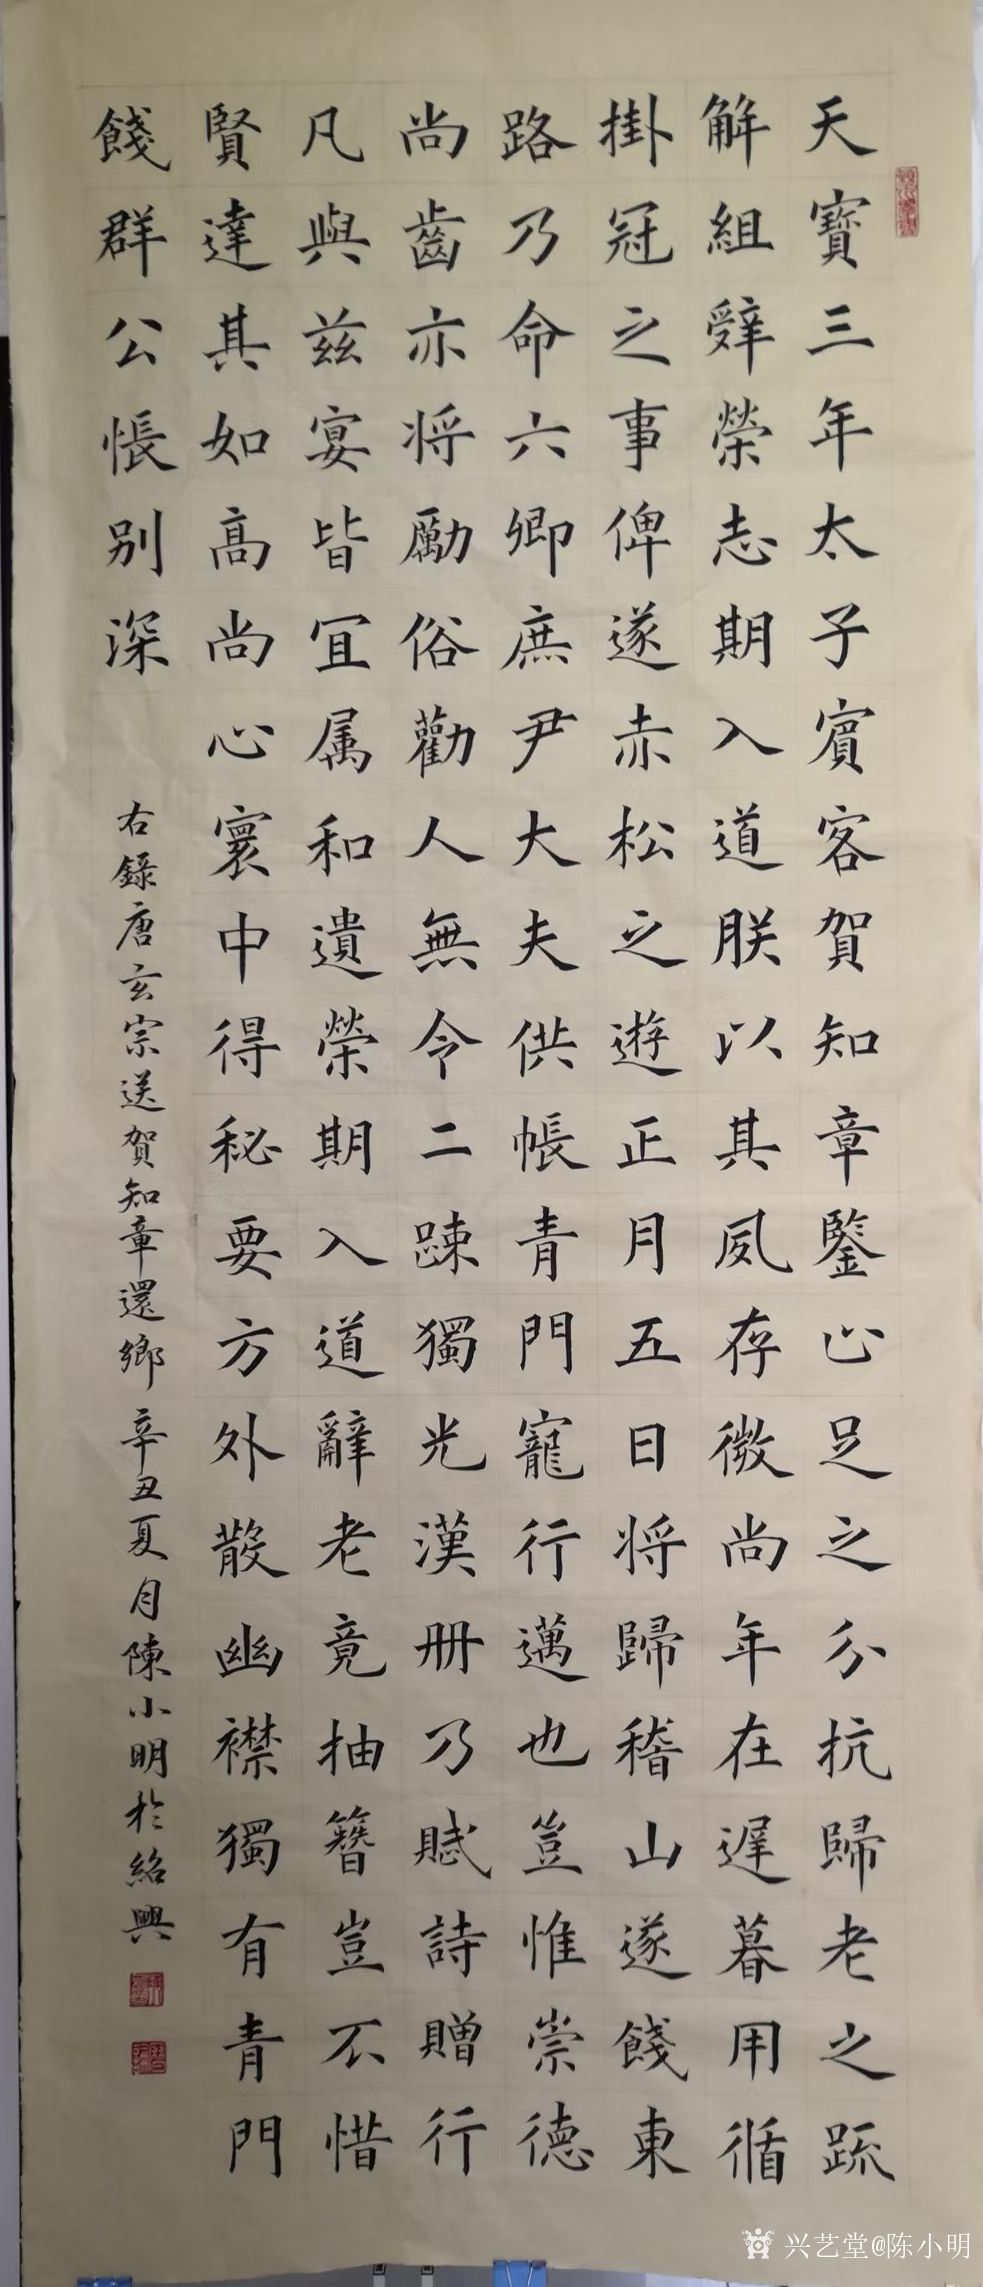 天寶三年太子賓客賀知章鑒止足之分抗歸老之疏
解組辭榮志期入道朕以其夙存微尚年在遲暮用循
掛冠之事俾遂赤松之遊正月五日將歸稽山遂餞東
路乃命六卿庶尹大夫供帳青門寵行邁也豈惟崇德
尚齒亦將勵俗勸人無令二踈獨光漢冊乃賦詩贈行
凡與茲宴皆宜属和遺榮期入道辭老竟抽簪豈不惜
賢達其如高尚心寰中得秘要方外散幽襟獨有青門
餞群公悵別深
右錄唐玄宗送賀知章還鄉 辛丑夏月陳小明於紹興
兴艺堂@陈小明